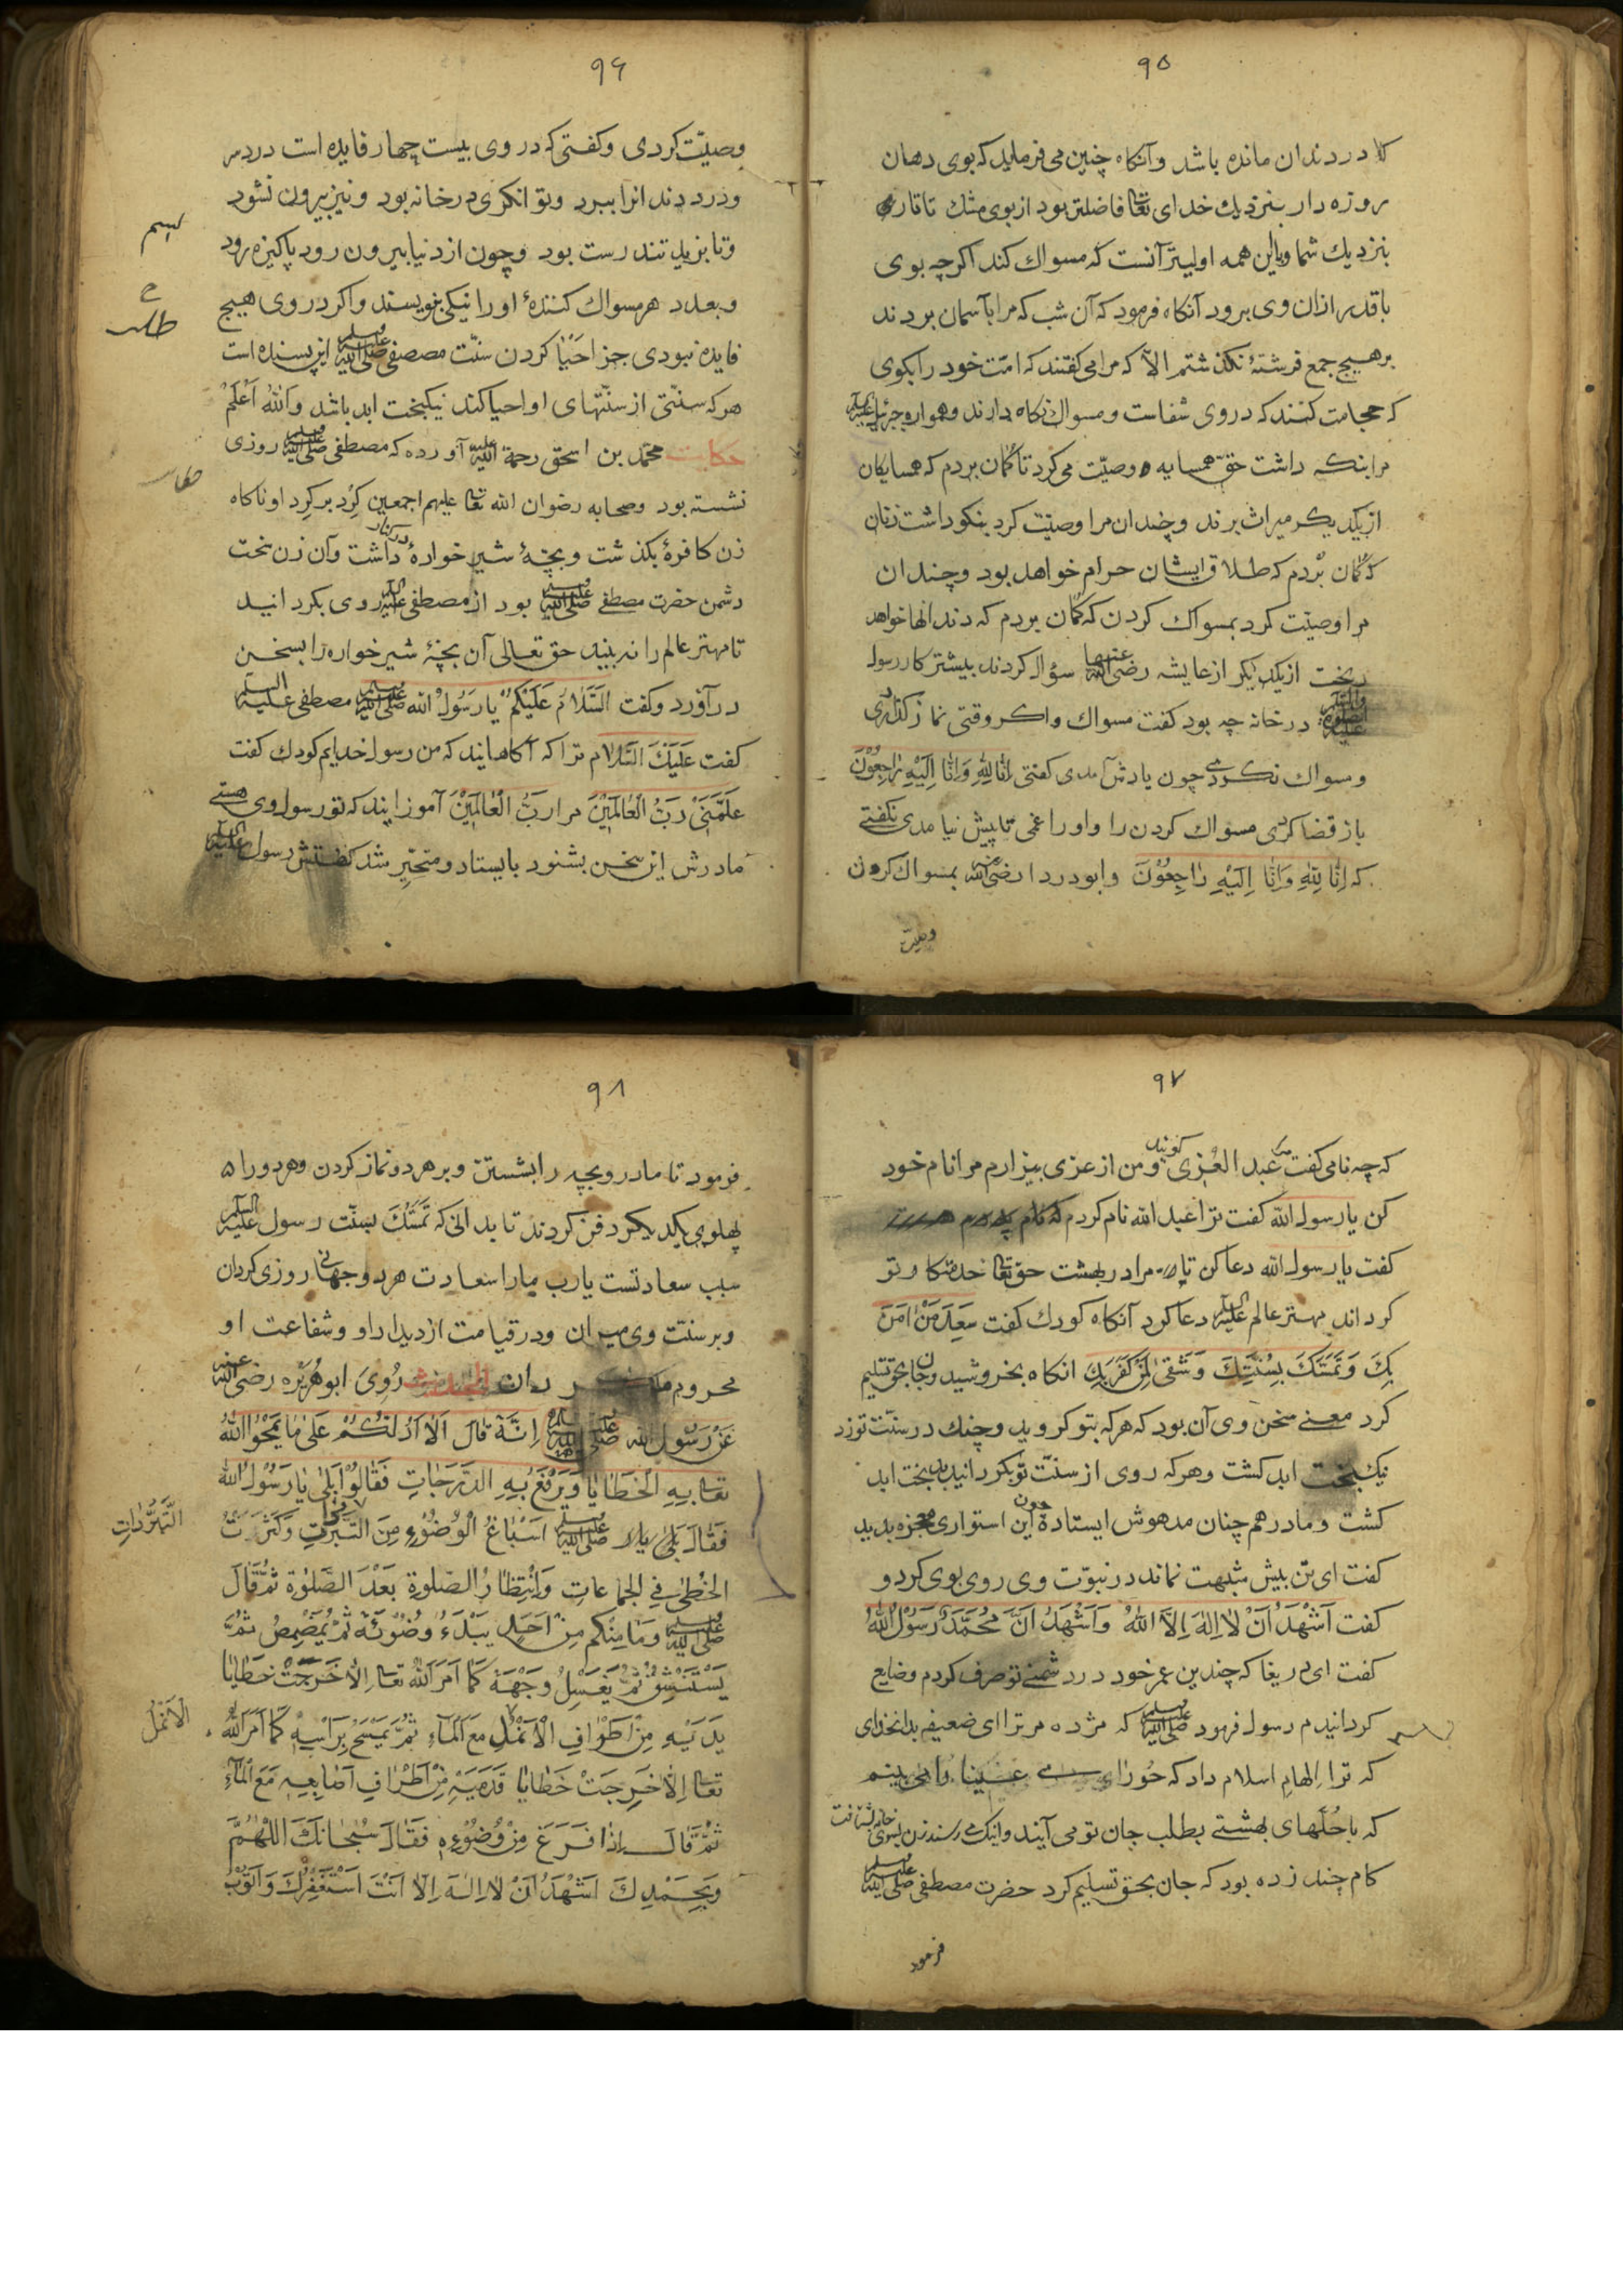 ۹۵
كه در دندان مانده باشد وآنكاه چنین می فرماید كه بوی دهان
روزه دار بنزدیك خدای تعا فاضلتر بود از بوی مشك تاتاری
بنزدیك شما وباین همه اولیتر آنست كه مسواك كند اكرچه بوی
باقدر ازان وی برود آنكاه فرمود كه آن شب كه مرا بآسمان بردند
بر هیچ جمع فرشتۀ نكذشتم الاّ كه مرا می كفتند كه امّت خود را بكوی
كه حجامت كنند كه در وی شفاست ومسواك نكاه دارند وهمواره جبرئیل علیه السلم
مرا بنكه داشت حقّ همسایه وصیّت می كرد تا كمان بردم كه همسایكان
از یكدیكر میراث برند وچندان مرا وصیّت كرد بنكو داشت زنان
كه كمان بردم كه طلاق ایشان حرام خواهد بود وچندان
مرا وصیّت كرد بمسواك كردن كه كمان بردم كه دندانها خواهد
ریخت از یكدیكر از عایشه رضی الله عنها سؤال كردند بیشتر كار رسول
علیه الصلوة والسلم در خانه چه بود كفت مسواك واكر وقتی نماز كذاردی
ومسواك نكردی چون یادش آمدی كفتی اِنَّا لِلّٰهِ وَاِنَّا اِلَیْهِ رَاجِعُوْنَ
باز قضا كردی مسواك كردن را واورا غمی تا پیش نیامدی نكفتی
كه اِنَّا لِلّٰهِ وَاِنَّا اِلَیْهِ رَاجِعُوْنَ وابو دردا رضی الله عنه بمسواك كردن
وصیّت
۹۶
وصیّت كردی وكفتی كه در وی بیست چهار فایده است درد سر
ودرد دندانرا ببرد وتوانكری در خانه بود ونیز بیرون نشود
وتا بزید تندرست بود وچون از دنیا بیرون رود پاكیزه رود
وبعدد هر مسواك كنندۀ اورا نیكی بنویسند واكر در وی هیچ
فایده نبودی جز احیا كردن سنّت مصطفی صلی الله علیه وسلم این پسنده است
هر كه سنّتی از سنّتهای او احیا كند نیكبخت ابد باشد وَاللهُ اَعْلَمُ
حكایت محمّد بن اسحق رحمة الله علیه آورده كه مصطفی صلی الله علیه وسلم روزی
نشسته بود وصحابه رضوان الله تعا علیهم اجمعین كِرد بر كِرد او ناكاه
زن كافرۀ بكذشت وبچّۀ شیر خوارۀ در كنار داشت وآن زن سخت
دشمن حضرت مصطفی صلی الله علیه وسلم بود از مصطفی علیه السلم روی بكردانید
تا مهتر عالم را نه بیند حق تعالی آن بچّۀ شیر خواره را بسخن
در آورد وكفت اَلسَّلَامُ عَلَیْكُمْ یَا رَسُولَ الله صلی الله علیه وسلم مصطفی علیه السلم
كفت عَلَیْكَ السَّلَام ترا كه آكاهانید كه من رسول خدایم كودك كفت
عَلَّمَنِیْ رَبُّ الْعَالَمِیْنَ مرا رَبُّ الْعَالَمِیْنَ آموزانید كه تو رسول وی هستی
مادرش این سخن بشنود بایستاد ومتحیّر شد كفتش رسول علیه السلم
۹۷
كه چه نامی كفت مرا عبد العُزی كویند ومن از عزی بیزارم مرا نام خود
كن یا رسول الله كفت ترا عبد الله نام كردم
كفت یا رسول الله دعا كن تا مرا در بهشت حق تعا خدمتكار تو
كرداند مهتر عالم علیه السلم دعا كرد آنكاه كودك كفت سَعِدَ مَنْ اٰمَنَ
بِكَ وَتَمَسَّكَ بِسُنَّتِكَ وَشَقِیَ مَنْ كَفَرَ بِكَ انكاه بخروشید وجان بحق تسلیم
كرد معنی سخن وی آن بود كه هر كه بتو كروید وچنك در سنّت تو زد
نیكبخت ابد كشت وهر كه روی از سنّت تو بكردانید بدبخت ابد
كشت ومادر همچنان مدهوش ایستاده چون این استواری معجزه بدید
كفت ای تن بیش شبهت نماند در نبوّت وی روی بوی كرد و
كفت اَشْهَدُ اَنْ لَا اِلٰهَ اِلَّا اللهُ وَاَشْهَدُ اَنَّ مُحَمَّدًا رَسُوْلُ اللهُ
كفت ای دریغا كه چندین عمر خود در دشمنی تو صرف كردم وضایع
كردانیدم رسول فرمود صلی الله علیه وسلم كه مژده مر ترا ای ضعیفه بدانخدای
كه ترا اِلهامِ اسلام داد كه حُورای را می بینم
كه با حُلّهای بهشتی بطلب جان تو می آیند واینك می رسند زن بسوی خانه بشتافت
كام چند زده بود كه جان بحق تسلیم كرد حضرت مصطفی صلی الله علیه وسلم
فرمود
۹۸
فرمود تا مادر وبچه را بشستن وبر هر دو نماز كردن وهر دو را
پهلوی یكدیكر دفن كردند تا بدانی كه تَمَسُّك بسنّت رسول علیه السلم
سبب سعادتست یا رب مارا سعادت هر دو جهانی روزی كردان
وبر سنّت وی میران ودر قیامت از دیدار او وشفاعت او
محروم مكردان الحدیث رُوِیَ ابو هُرَیْره رضی الله عنه
عَنْ رَسُولِ الله صلی الله علیه وسلم اِنَّهُ قَالَ اَلَا اَدُلُّكُمْ عَلٰی مَا یَمْحُو اللهُ
تعا بِهِ الْخَطَایَا وَیَرْفَعُ بِهِ الدَّرَجَاتِ فَقَالُوْا بَلٰی یَا رَسُوْلَ الله
فَقَالَ صلی الله علیه وسلم اِسْبَاغُ الْوُضُوْءِ مِنَ السَّبَرَاتِ وَكَثْرَتُ
الْخُطٰی فِی الْجَمَاعَاتِ وَانْتِظَارُ الصَّلوة بَعْدَ الصَّلوٰة ثُمَّ قَالَ
صلی الله علیه وسلم وَمَا مِنْكُم مِنْ اَحَدٍ یَبْدَءُ وُضُوْئَهُ ثُمَّ یُمَضْمِضُ ثُمَّ
یَسْتَنْشِقُ ثُمَّ یَغْسِلُ وَجْهَهُ كَمَا اَمَرَ اللهُ تعا اِلَّا خَرَجَتْ خَطَایَا
یَدَیْهِ مِنْ اَطْرَافِ الْاَنْمُلِ مَعَ الْمَآءِ ثُمَّ یَمْسَحُ بِرَأْسِهِ كَمَا اَمَرَ اللهُ
تعا اِلَّا خَرَجَتْ خَطَایَا قَدَمَیْهِ مِنْ اَطْرَافِ اَصَابِعِهِ مَعَ الْمَآءِ
ثُمَّ قَالَ اِذَا فَرَغَ مِنْ وُضُوْءِهِ فَقَالَ سُبْحَانَكَ اللّٰهُمَّ
وَبِحَمْدِكَ اَشْهَدُ اَنْ لَا اِلٰهَ اِلَّا اَنْتَ اَسْتَغْفِرُكَ وَاَتُوْبُ
الْاَنْمُل